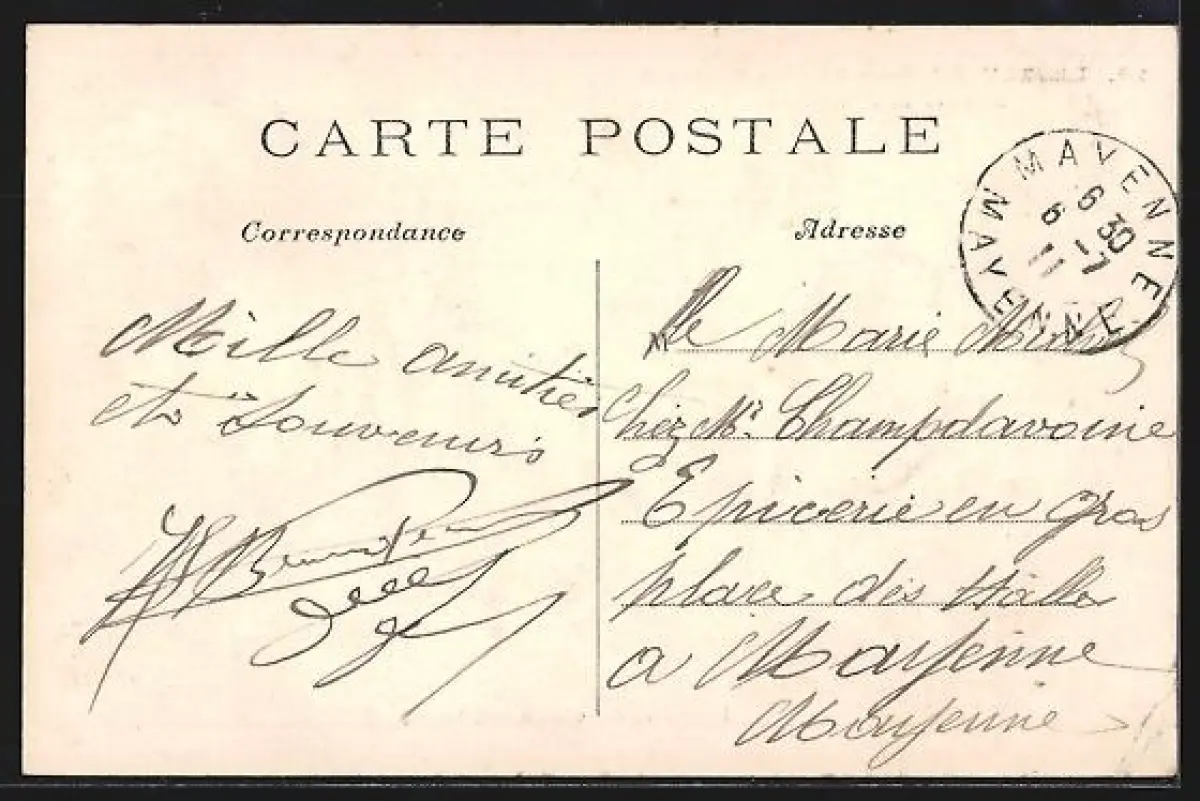 CARTE POSTALE
Correspondance
Adresse
MAYENNE
6 30
6 - 7
11
MAYENNE
Mille amitiés
et Souvenirs
Mlle Marie
Chez Mr. Champdavoine
Epicerie en gros
place des Halles
a Mayenne
Mayenne